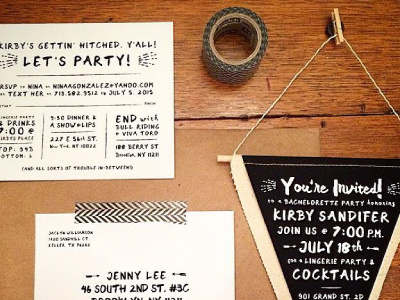 KIRBY'S GETTIN' HITCHED, Y'ALL!
LET'S PARTY!
RSVP to NINA at NINAAGONZALEZ@YAHOO.COM
or TEXT HER at 713.582.9512 by JULY 5, 2015
LINGERIE PARTY
& DRINKS
7:00 @
KIRBY'S PLACE
9:30 DINNER &
A SHOW @ LIPS
227 E 56th ST.
NEW YORK, NY 10022
END with
BULL RIDING
@ VIVA TORO
188 BERRY ST
Brooklyn, NY 11211
(AND ALL SORTS OF TROUBLE IN-BETWEEN)
JACLYN WILLIAMSON
JENNY LEE
46 SOUTH 2ND ST. #3C
BROOKLYN NY 11
You're Invited!
to a BACHELORETTE PARTY honoring
KIRBY SANDIFER
JOIN US @ 7:00 P.M.
JULY 18th
for a LINGERIE PARTY &
COCKTAILS
901 GRAND ST. 2D